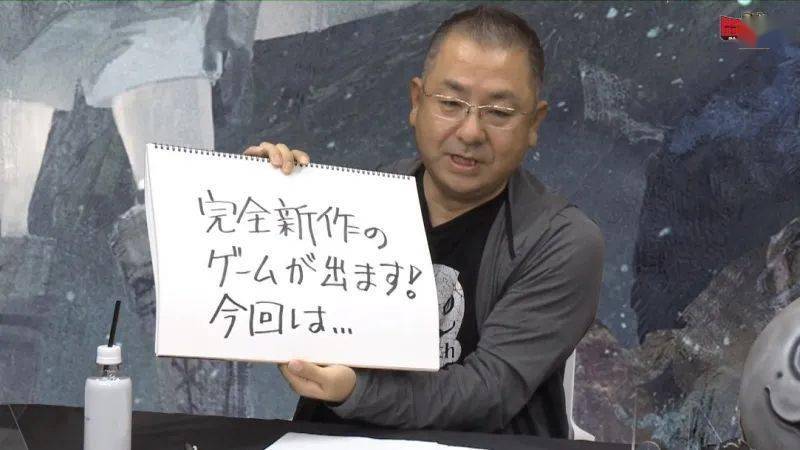 完全新作の
ゲームが出ます!
今回は...